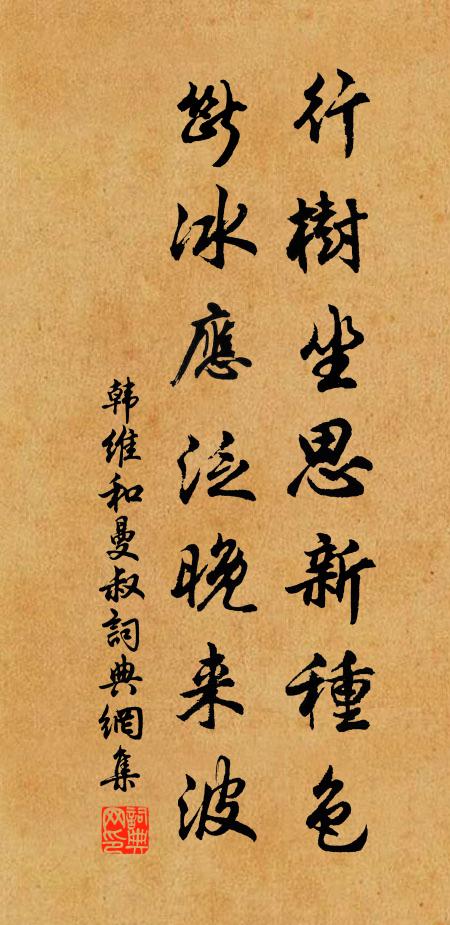 行樹坐思新種色
斷冰應泛晚来波
韩維和曼叔詞典網集
詞典网印